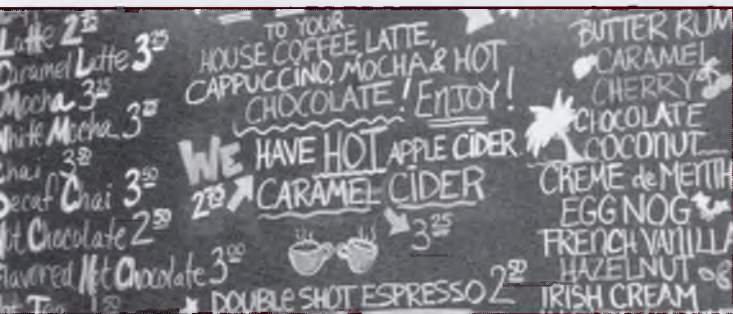 Latte 2
Caramel Latte 3
Mocha 3
White Mocha 3
Chai 3
Decaf Chai 3 50
Hot Chocolate 2 50
Flavored Hot Chocolate 3 00
Hot Tea 1
TO YOUR
HOUSE COFFEE, LATTE,
CAPPUCCINO, MOCHA & HOT
CHOCOLATE! ENJOY!
WE HAVE HOT APPLE CIDER
2 CARAMEL CIDER
3 25
DOUBLE SHOT ESPRESSO 2
BUTTER RUM
CARAMEL
CHERRY
CHOCOLATE
COCONUT
CREME de MENTH
EGG NOG
FRENCH VANILLA
HAZELNUT
IRISH CREAM